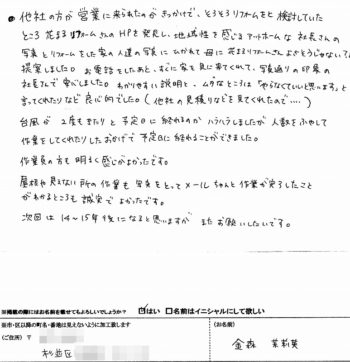 他社の方が営業に来られたのがきっかけで、そろそろリフォームをと検討していた
ところ 花まるリフォームさんのHPを発見し、地域性を感じるアットホームな社長さんの
写真とリフォームをした家の人達の写真にひかれて母に花まるリフォームさんよさそうじゃない?と
提案しました。お電話をしたあと、すぐに家を見に来てくれて、写真通りの印象の
社長さんで安心しました。わかりやすい説明と、ムダなところは「やらなくていいと思います」と
言ってくれたりなど良心的でした。(他社の見積りなどを見てくれたので....)
台風が2度もきたりと予定日に終わるのかハラハラしましたが人数をふやして
作業をしてくれたりしたおかげで予定日に終わることができました。
作業員の方も明るく感じがよかったです。
屋根や見えない所の作業も写真をとってメールちゃんと作業が完了したこと
がわかるところも誠実でよかったです。
次回は14〜15年後になると思いますがまたお願いしたいです。
※掲載の際にはお名前を載せてもよろしいでしょうか? ☑はい □名前はイニシャルにして欲しい
※市・区以降の町名・番地は見えないように加工致します
(ご住所) 〒
杉並区
(お名前)
金森 茉莉英